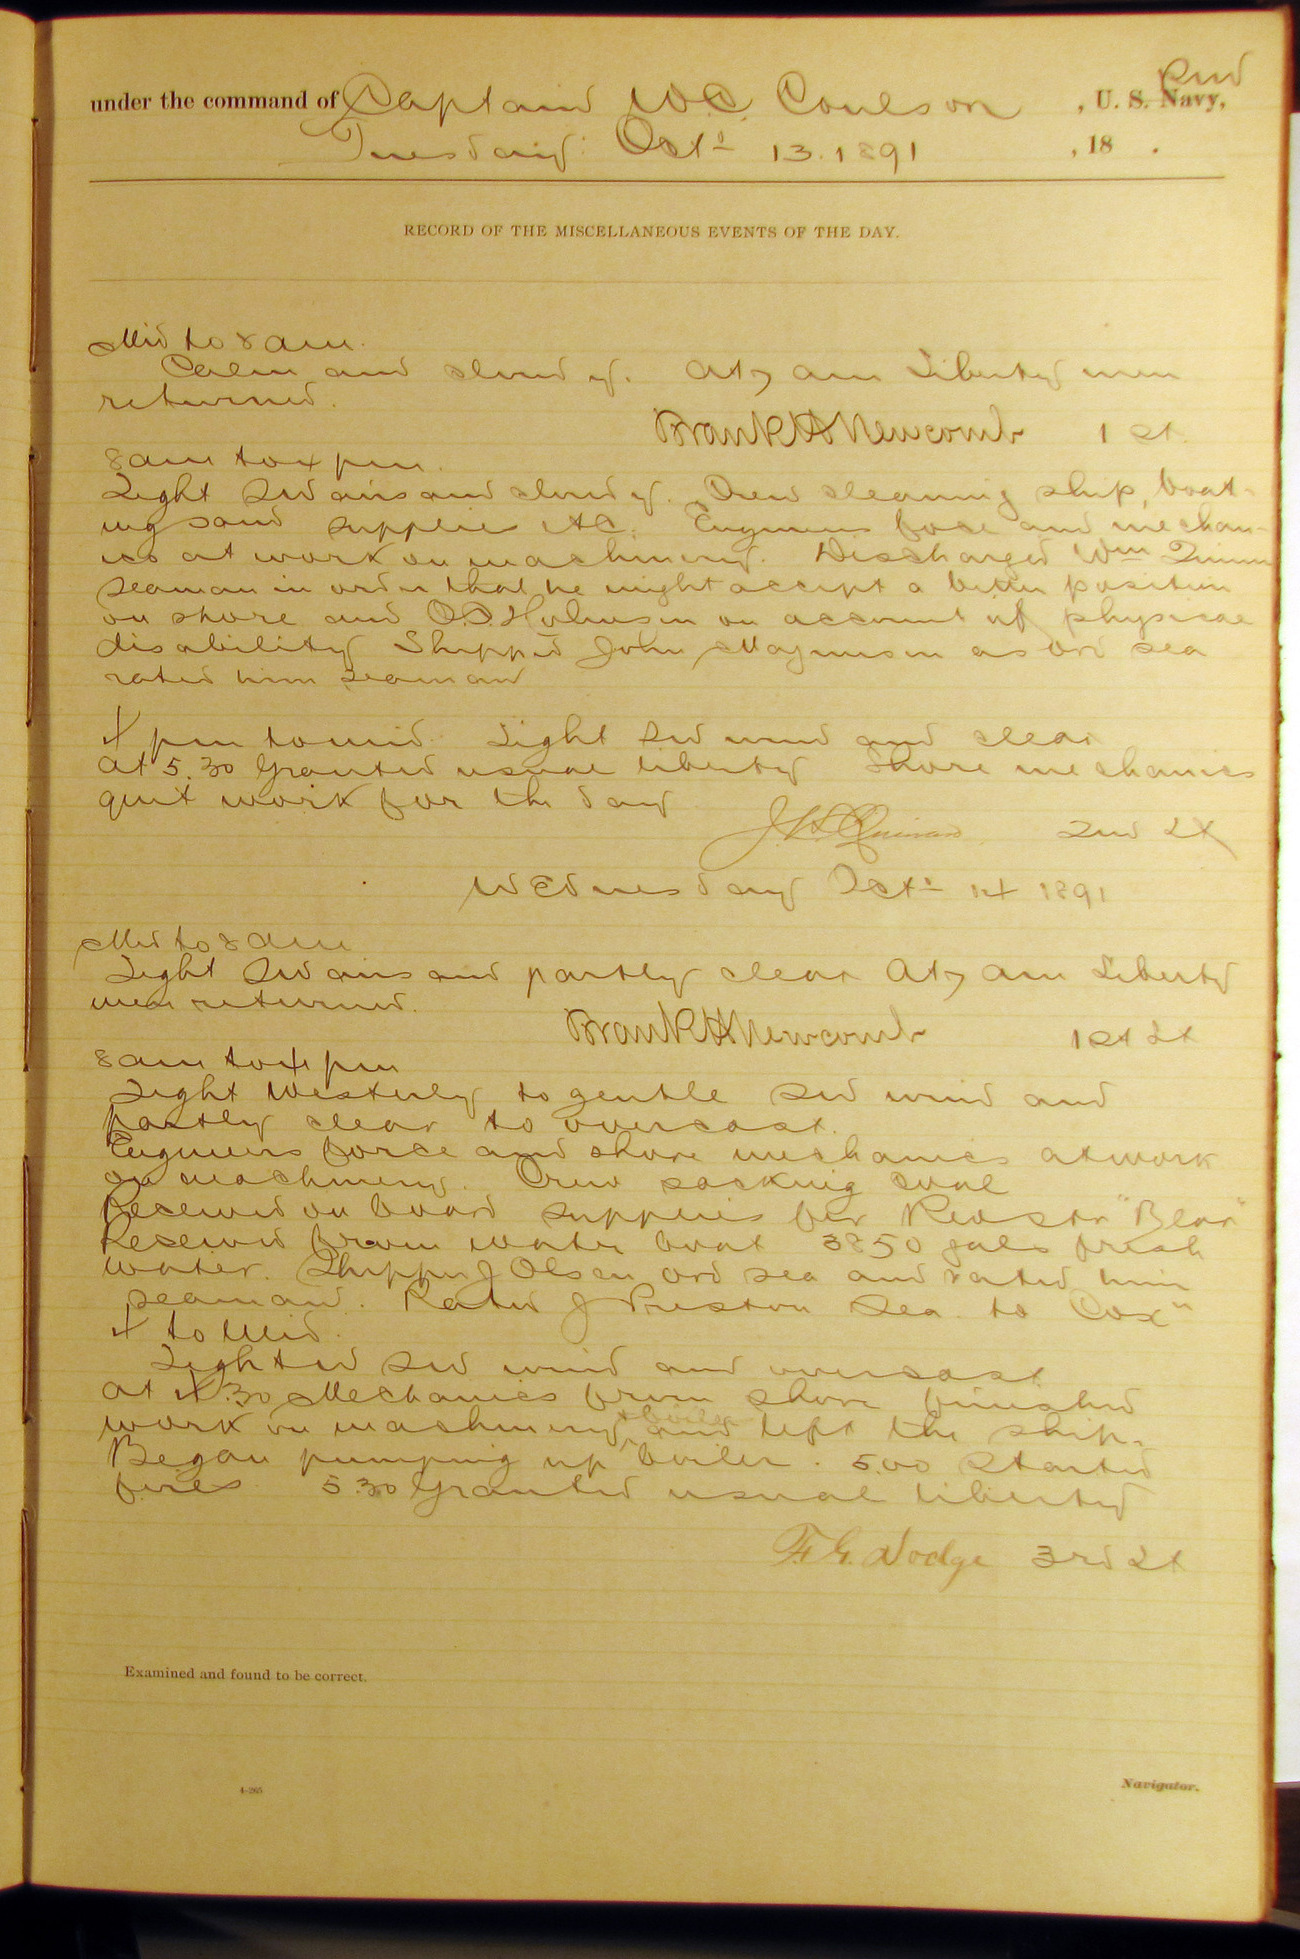 Rev
under the command of Captain W.C. Coulson , U. S. Navy,
Tuesday Oct 13. 1891 , 18 .
RECORD OF THE MISCELLANEOUS EVENTS OF THE DAY.
Mid to 8 am.
Calm and cloudy. At 7 am Liberty men
returned.
Frank H Newcomb 1 st.
8 am to 4 pm.
Light SW airs and cloudy. Crew cleaning ship, boat-
ing sand supplies &c. Engineers force and mechan-
ics at work on machinery. Discharged Wm
seaman in order that he might accept a better position
on shore and on account of physical
disability Shipped John Magnusen as ord sea
rated him seaman
4 pm to mid Light SW wind and clear
At 5.30 Granted usual liberty Shore mechanics
quit work for the day
J.H. Quinan 2nd Lt
Wednesday Oct 14 1891
Mid to 8 am
Light SW airs and partly clear At 7 am Liberty
men returned.
Frank H Newcomb 1 st Lt
8 am to 4 pm
Light Westerly to gentle SW wind and
partly clear to overcast.
Engineers force and shore mechanics at work
on machinery. Crew sacking coal
Received on board supplies for Rev Str "Bear"
Received from water boat 3850 gals fresh
water. Shipped J Olsen ord sea and rated him
seaman. Rated J Preston Sea. to Cox"
4 to Mid.
Light SW wind and overcast
At 4.30 Mechanics from shore finished
work on machinery & boiler and left the ship.
Began pumping up boiler. 5.00 Started
fires 5.30 Granted usual liberty
F.G. Dodge 3rd Lt
Examined and found to be correct.
4-265
Navigator.